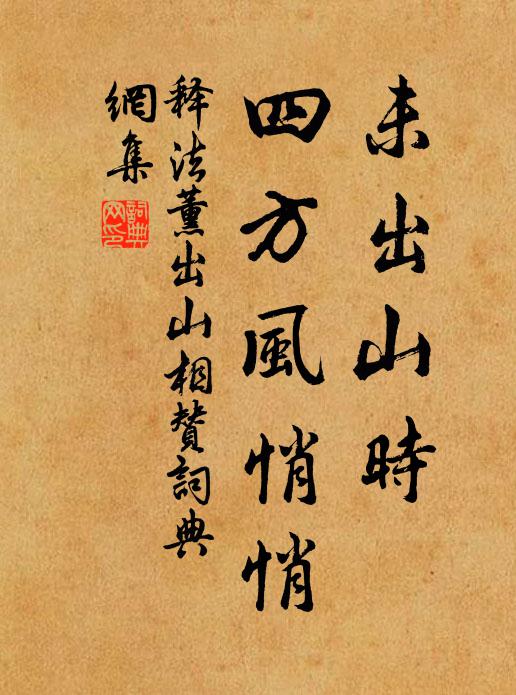 未出山時
四方風悄悄
释法薰出山相贊詞典
網集
詞典
网印